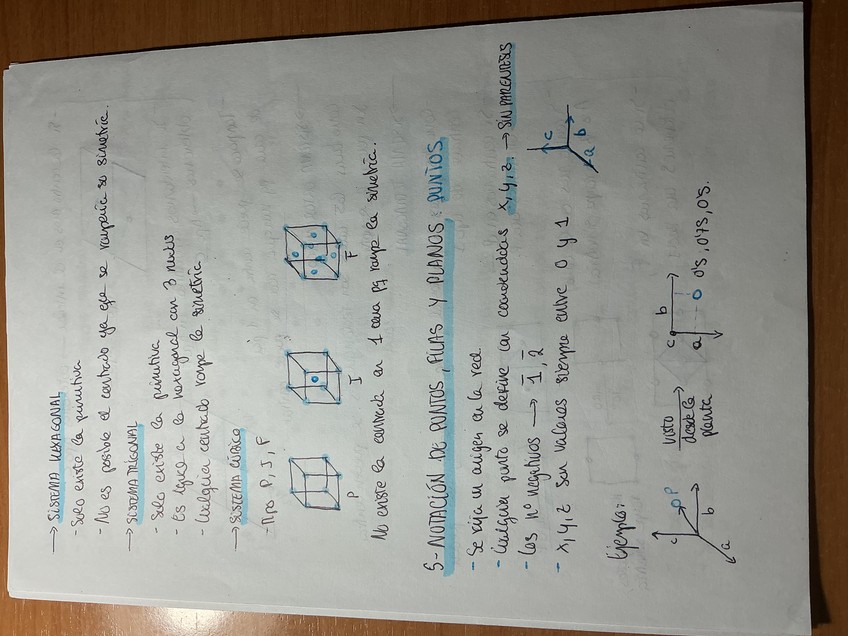 → SISTEMA HEXAGONAL
- Solo existe la primitiva
- No es posible el centrado ya que se rompería su simetría.
→ SISTEMA TRIGONAL
- Solo existe la primitiva
- Es igual a la hexagonal con 3 nudos
- Cualquier centrado rompe la simetría.
→ SISTEMA CÚBICO
- Tipo P, I, F
P I F
No existe la centrada en 1 cara pq rompe la simetría.
5- NOTACIÓN DE PUNTOS, FILAS Y PLANOS: PUNTOS.
- Se fija un origen en la red.
- Cualquier punto se define con coordenadas x, y, z. → SIN PARENTESIS
- Los nº negativos → 1̄, 2̄
- x, y, z son valores siempre entre 0 y 1
c
b
a
Ejemplo:
c
P
b
a
visto
desde la
planta
c
b
a
0'5, 0'75, 0'5.